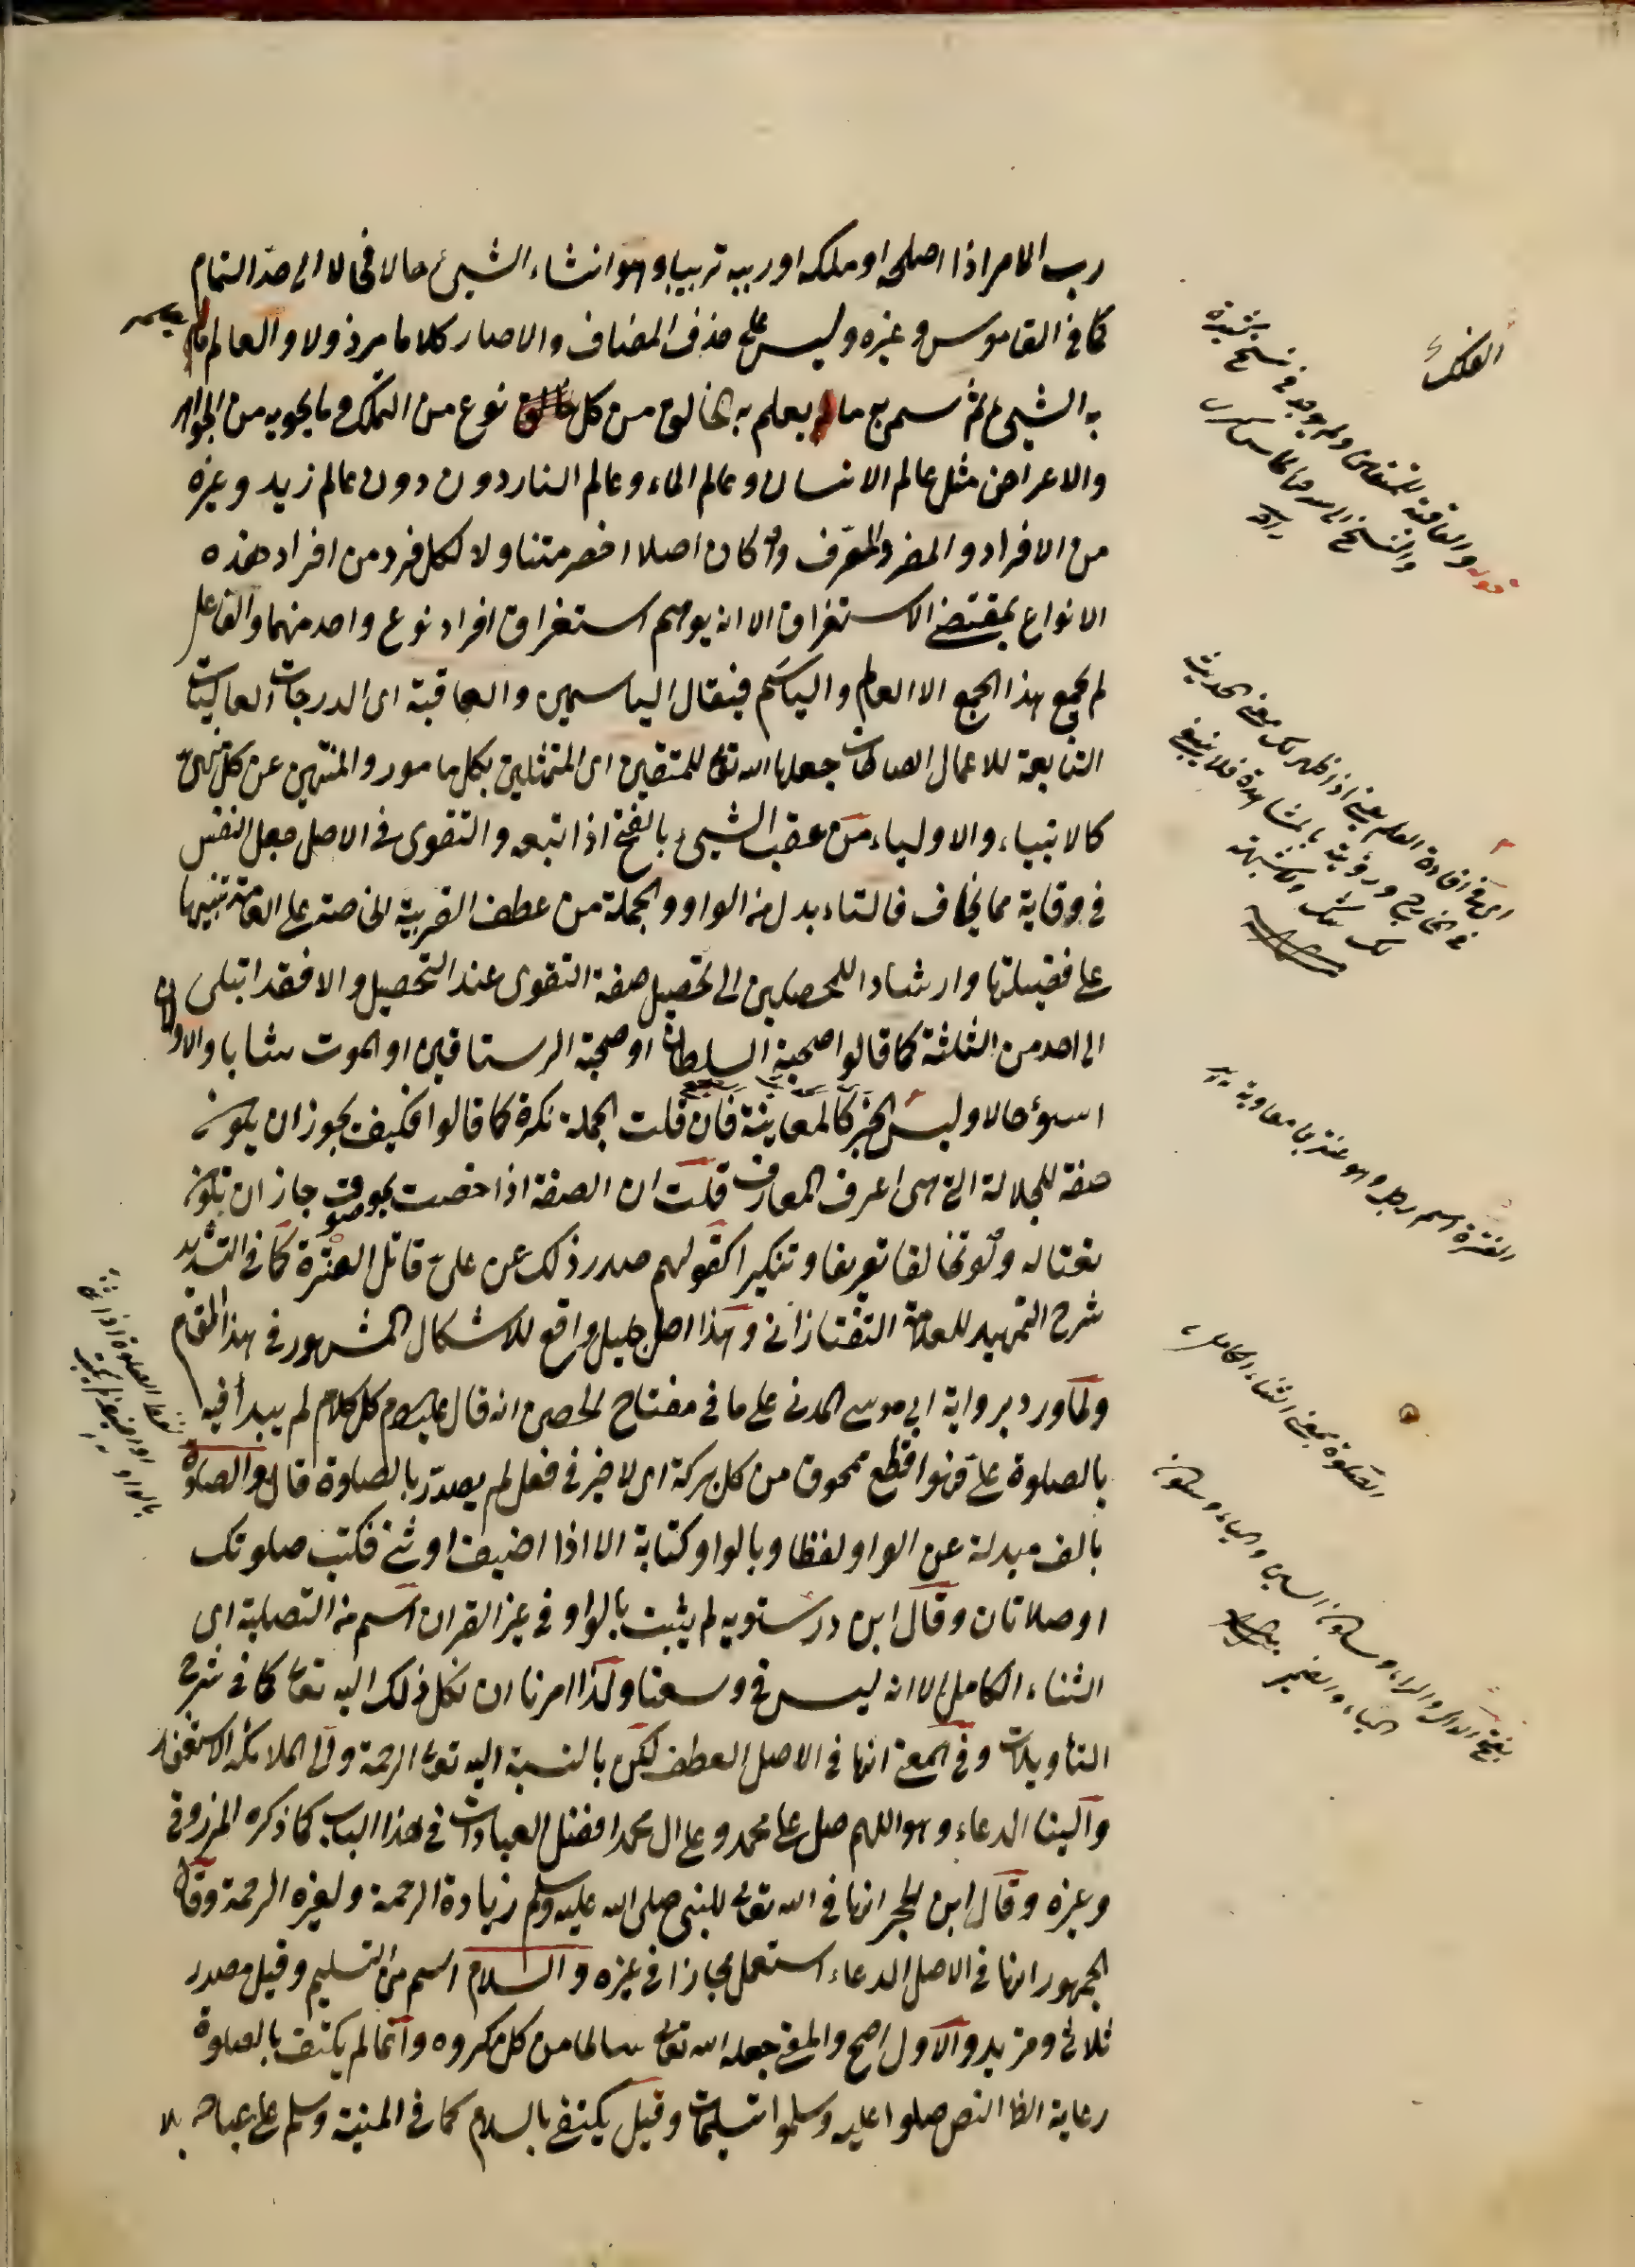 رب الامر اذا اصلحه او ملكه او ربيه تربيبا وهو انشاء الشيئ حالا فحالا الى حد التمام
كما في القاموس وغيره وليس على حذف المضاف والا صار كلاما مرذولا والعالم ما يعلم
به الشيئ ثم سمي به ما يعلم به الخالق من كل نوع من الفلك وما يحويه من الجواهر
والاعراض مثل عالم الانسان وعالم الماء وعالم النار دون دون عالم زيد وغيره
من الافراد والمفرد المعرف وان كان اصلا اخصر متناولا لكل فرد من افراد هذه
الانواع بمقتضى الاستغراق الا انه يوهم استغراق افراد نوع واحد منهما والفاعل
لم يجمع هذا الجمع الا العالم والياسم فيقال الياسمين والعاقبة اى الدرجات العاليات
التابعة للاعمال الصالحات جعلها الله تعالى للمتقين اى المتمثلين بكل مامور والمنتهين عن كل منهي
كالانبياء والاولياء من عقب الشيئ بالفتح اذا تبعه والتقوى في الاصل جعل النفس
في وقاية مما يخاف فالتاء بدل من الواو والجملة من عطف القريبة الخاصة على العامة تنبيها
على فضيلتها وارشادا للمحصلين الى تحصيل صفة التقوى عند التحصيل والا فقد ابتلى
الى احد من الثلثة كما قالوا صحبة السلطان او صحبة الرستاقين او الموت شابا والاولان
اسوء حالا وليس الخبر كالمعاينة فان قلت الجملة نكرة كما قالوا فكيف يجوز ان يكون
صفة للجلالة التي هي اعرف المعارف قلت ان الصفة اذا خصت بموصوف جاز ان تكون
نعتا له ولو تخالفا تعريفا وتنكيرا كقولهم صدر ذلك عن علي قاتل العنترة كما في التشديد
شرح التمهيد للعلامة التفتازاني وهذا اصل جليل واقع للاشكال المشهور في هذا المقام
ولما ورد برواية ابي موسى المدني على ما في مفتاح الحصن انه قال عليه السلام كل كلام لم يبدأ فيه
بالصلوة علي فهو اقطع ممحوق من كل بركة اى لا خير في فعل لم يصدر بالصلوة قال والصلوة
بالف مبدلة عن الواو لفظا وبالواو كتابة الا اذا اضيف او ثني فكتب صلوتك
او صلاتان وقال ابن درستويه لم يثبت بالواو في غير القران اسم من التصلية اى
الثناء الكامل الا انه ليس في وسعنا ولذا امرنا ان نكل ذلك اليه تعالى كما في شرح
التأويلات وفي المغني انها في الاصل العطف لكن بالنسبة اليه تعالى الرحمة والى الملائكة الاستغفار
والينا الدعاء وهو اللهم صل على محمد وعلى ال محمد افضل العبادات في هذا الباب كما ذكره المرزوقي
وغيره وقال ابن الحجر انها في الله تعالى للنبي صلى الله عليه وسلم زيادة الرحمة ولغيره الرحمة وقال
الجمهور انها في الاصل الدعاء استعمل مجازا في غيره والسلام اسم من التسليم وقيل مصدر
ثلاثي ومزيد والاول اصح والمعنى جعله الله تعالى سالما من كل مكروه وانما لم يكتف بالصلوة
رعاية الظا النص صلوا عليه وسلموا تسليما وقيل يكتفى بالسلام كما في المنية وسلم على عباده بلا
الفلك
قوله والعاقبة للمتقين ولم يوجد في نسخ كثيرة
اى في افادة العلم يعني اذا ظهر لك معنى الحديث
في الخارج ورؤيته بالمشاهدة فلا ينبغي
لك شك ولا شبهة
العنترة اسم رجل وهو عنتر بن معاوية
الصلوة بمعنى الثناء الكامل
بفتح الدال والراء وسكون السين والياء وسكون